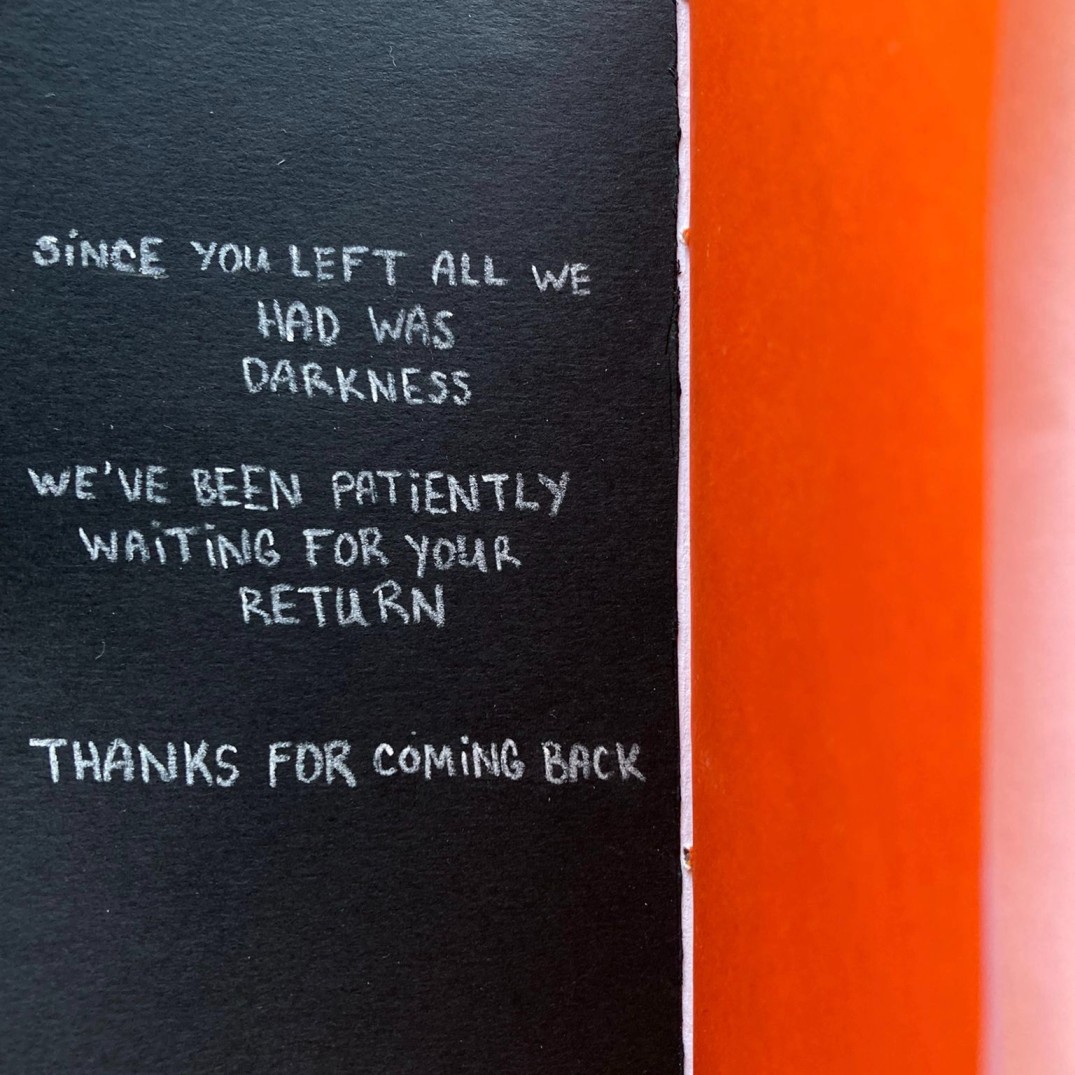 SiNCE YOU LEFT ALL WE
HAD WAS
DARKNESS
WE'VE BEEN PATiENTLY
WAiTiNG FOR YOUR
RETURN
THANKS FOR COMiNG BACK